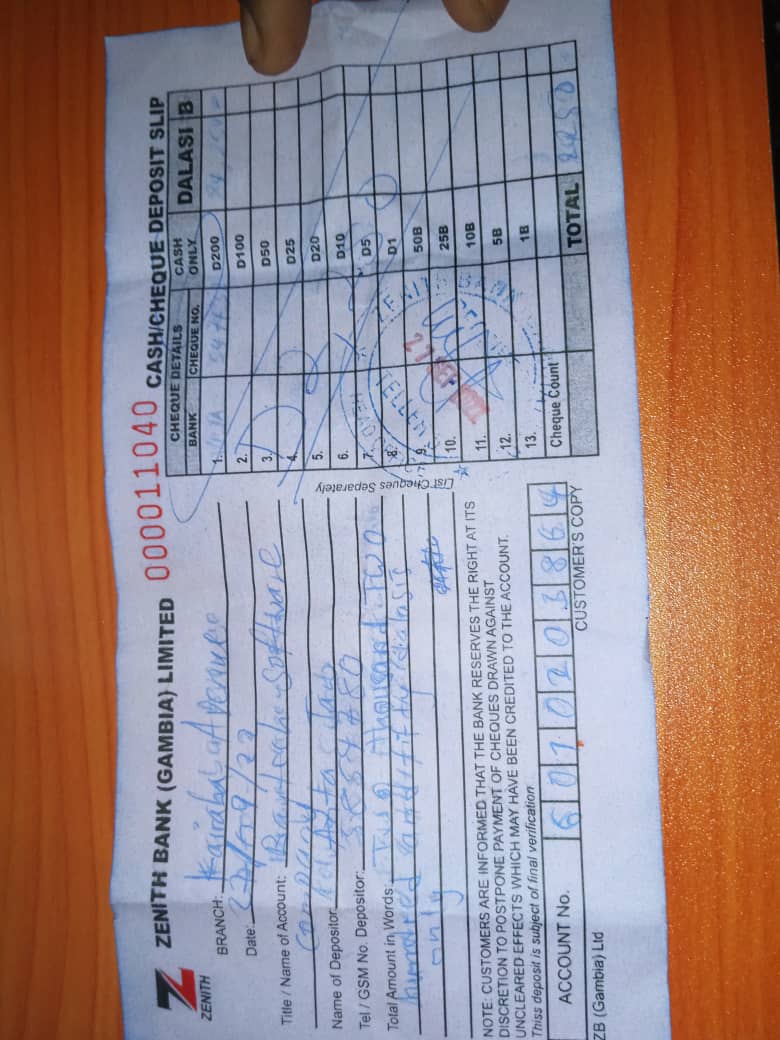 ZENITH
ZENITH BANK (GAMBIA) LIMITED 0000011040 CASH/CHEQUE DEPOSIT SLIP
BRANCH: Kairaba Avenue
Date: 27/09/22
Title / Name of Account: Software
Company
Name of Depositor
Tel / GSM No. Depositor:
Total Amount in Words: Two Thousand Two
hundred and fifty dalasis
only
List Cheques Separately
CHEQUE DETAILS
BANK CHEQUE NO. CASH ONLY DALASI B
1. D200
2. D100
3. D50
4. D25
5. D20
6. D10
7. D5
8. D1
9. 50B
10. 25B
11. 10B
12. 5B
13. 1B
Cheque Count TOTAL
D2250
ZENITH BANK
TELLER
27 SEP 2022
NOTE: CUSTOMERS ARE INFORMED THAT THE BANK RESERVES THE RIGHT AT ITS
DISCRETION TO POSTPONE PAYMENT OF CHEQUES DRAWN AGAINST
UNCLEARED EFFECTS WHICH MAY HAVE BEEN CREDITED TO THE ACCOUNT.
Thiss deposit is subject of final verification
ACCOUNT No. 6010203864
ZB (Gambia) Ltd CUSTOMER'S COPY